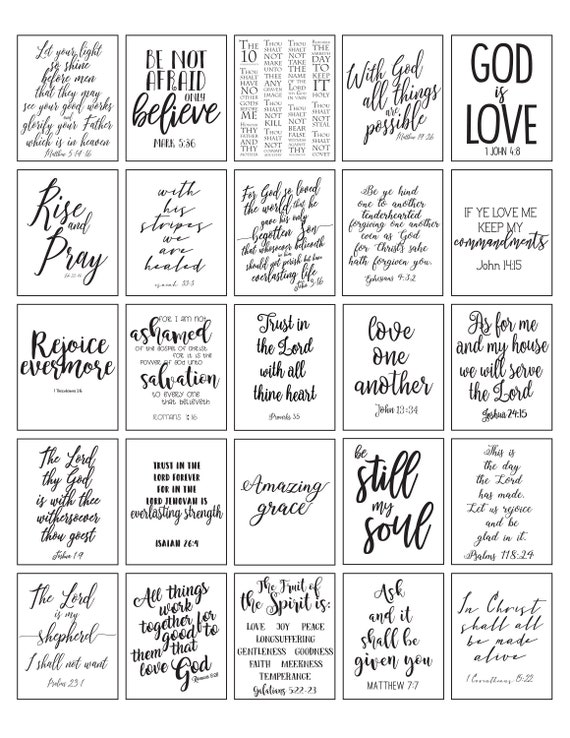 Let your light
so shine
before men
that they may
see your good works
and
glorify your Father
which is in heaven
Matthew 5:14-16
BE NOT
AFRAID
ONLY
believe
MARK 5:36
THE
10
THOU
SHALT
HAVE
NO
OTHER
GODS
BEFORE
ME
HONOR
THY
FATHER
AND THY
MOTHER
THOU
SHALT
NOT
MAKE
UNTO
THEE
ANY
GRAVEN
IMAGE
THOU
SHALT
NOT
KILL
THOU
SHALT
NOT
STEAL
THOU
SHALT
NOT TAKE
THE
NAME OF
THE LORD
THY GOD
IN VAIN
THOU
SHALT
NOT
BEAR
FALSE
WITNESS
REMEMBER
THE
SABBATH
DAY
TO
KEEP
IT
HOLY
THOU
SHALT
NOT
COMMIT
ADULTERY
THOU
SHALT
NOT
COVET
With God
all things
are
possible
Matthew 19:26
GOD
is
LOVE
1 JOHN 4:8
Rise
and
Pray
with
his
stripes
we
are
healed
isaiah 53:5
For God so loved
the world that he
gave his only
begotten Son
that whosoever believeth
in him
should not perish but have
everlasting life
John 3:16
Be ye kind
one to another
tenderhearted
forgiving one another
even as God
for Christs sake
hath forgiven you.
Ephesians 4:32
IF YE LOVE ME
KEEP MY
commandments
John 14:15
Rejoice
evermore
1 Thessalonians 5:16
for I am not
ashamed
of the gospel of christ
for it is the
power of god unto
salvation
to every one
that believeth
Romans 1:16
Trust in
the Lord
with all
thine heart
Proverbs 3:5
love
one
another
John 13:34
As for me
and my house
we will serve
the Lord
Joshua 24:15
The Lord
thy God
is with thee
withersoever
thou goest
Joshua 1:9
TRUST IN THE
LORD FOREVER
FOR IN THE
LORD JEHOVAH IS
everlasting strength
ISAIAH 26:4
Amazing
grace
be
still
my
soul
This is
the day
the Lord
has made.
Let us rejoice
and be
glad in it.
Psalms 118:24
The Lord
is my
shepherd
I shall not want
Psalms 23:1
All things
work
together for
good to
them that
love God
Romans 8:28
The Fruit of
the Spirit is:
LOVE JOY PEACE
LONGSUFFERING
GENTLENESS GOODNESS
FAITH MEEKNESS
TEMPERANCE
Galatians 5:22-23
Ask
and it
shall be
given you
MATTHEW 7:7
In Christ
shall all
be made
alive
1 Corinthians 15:22